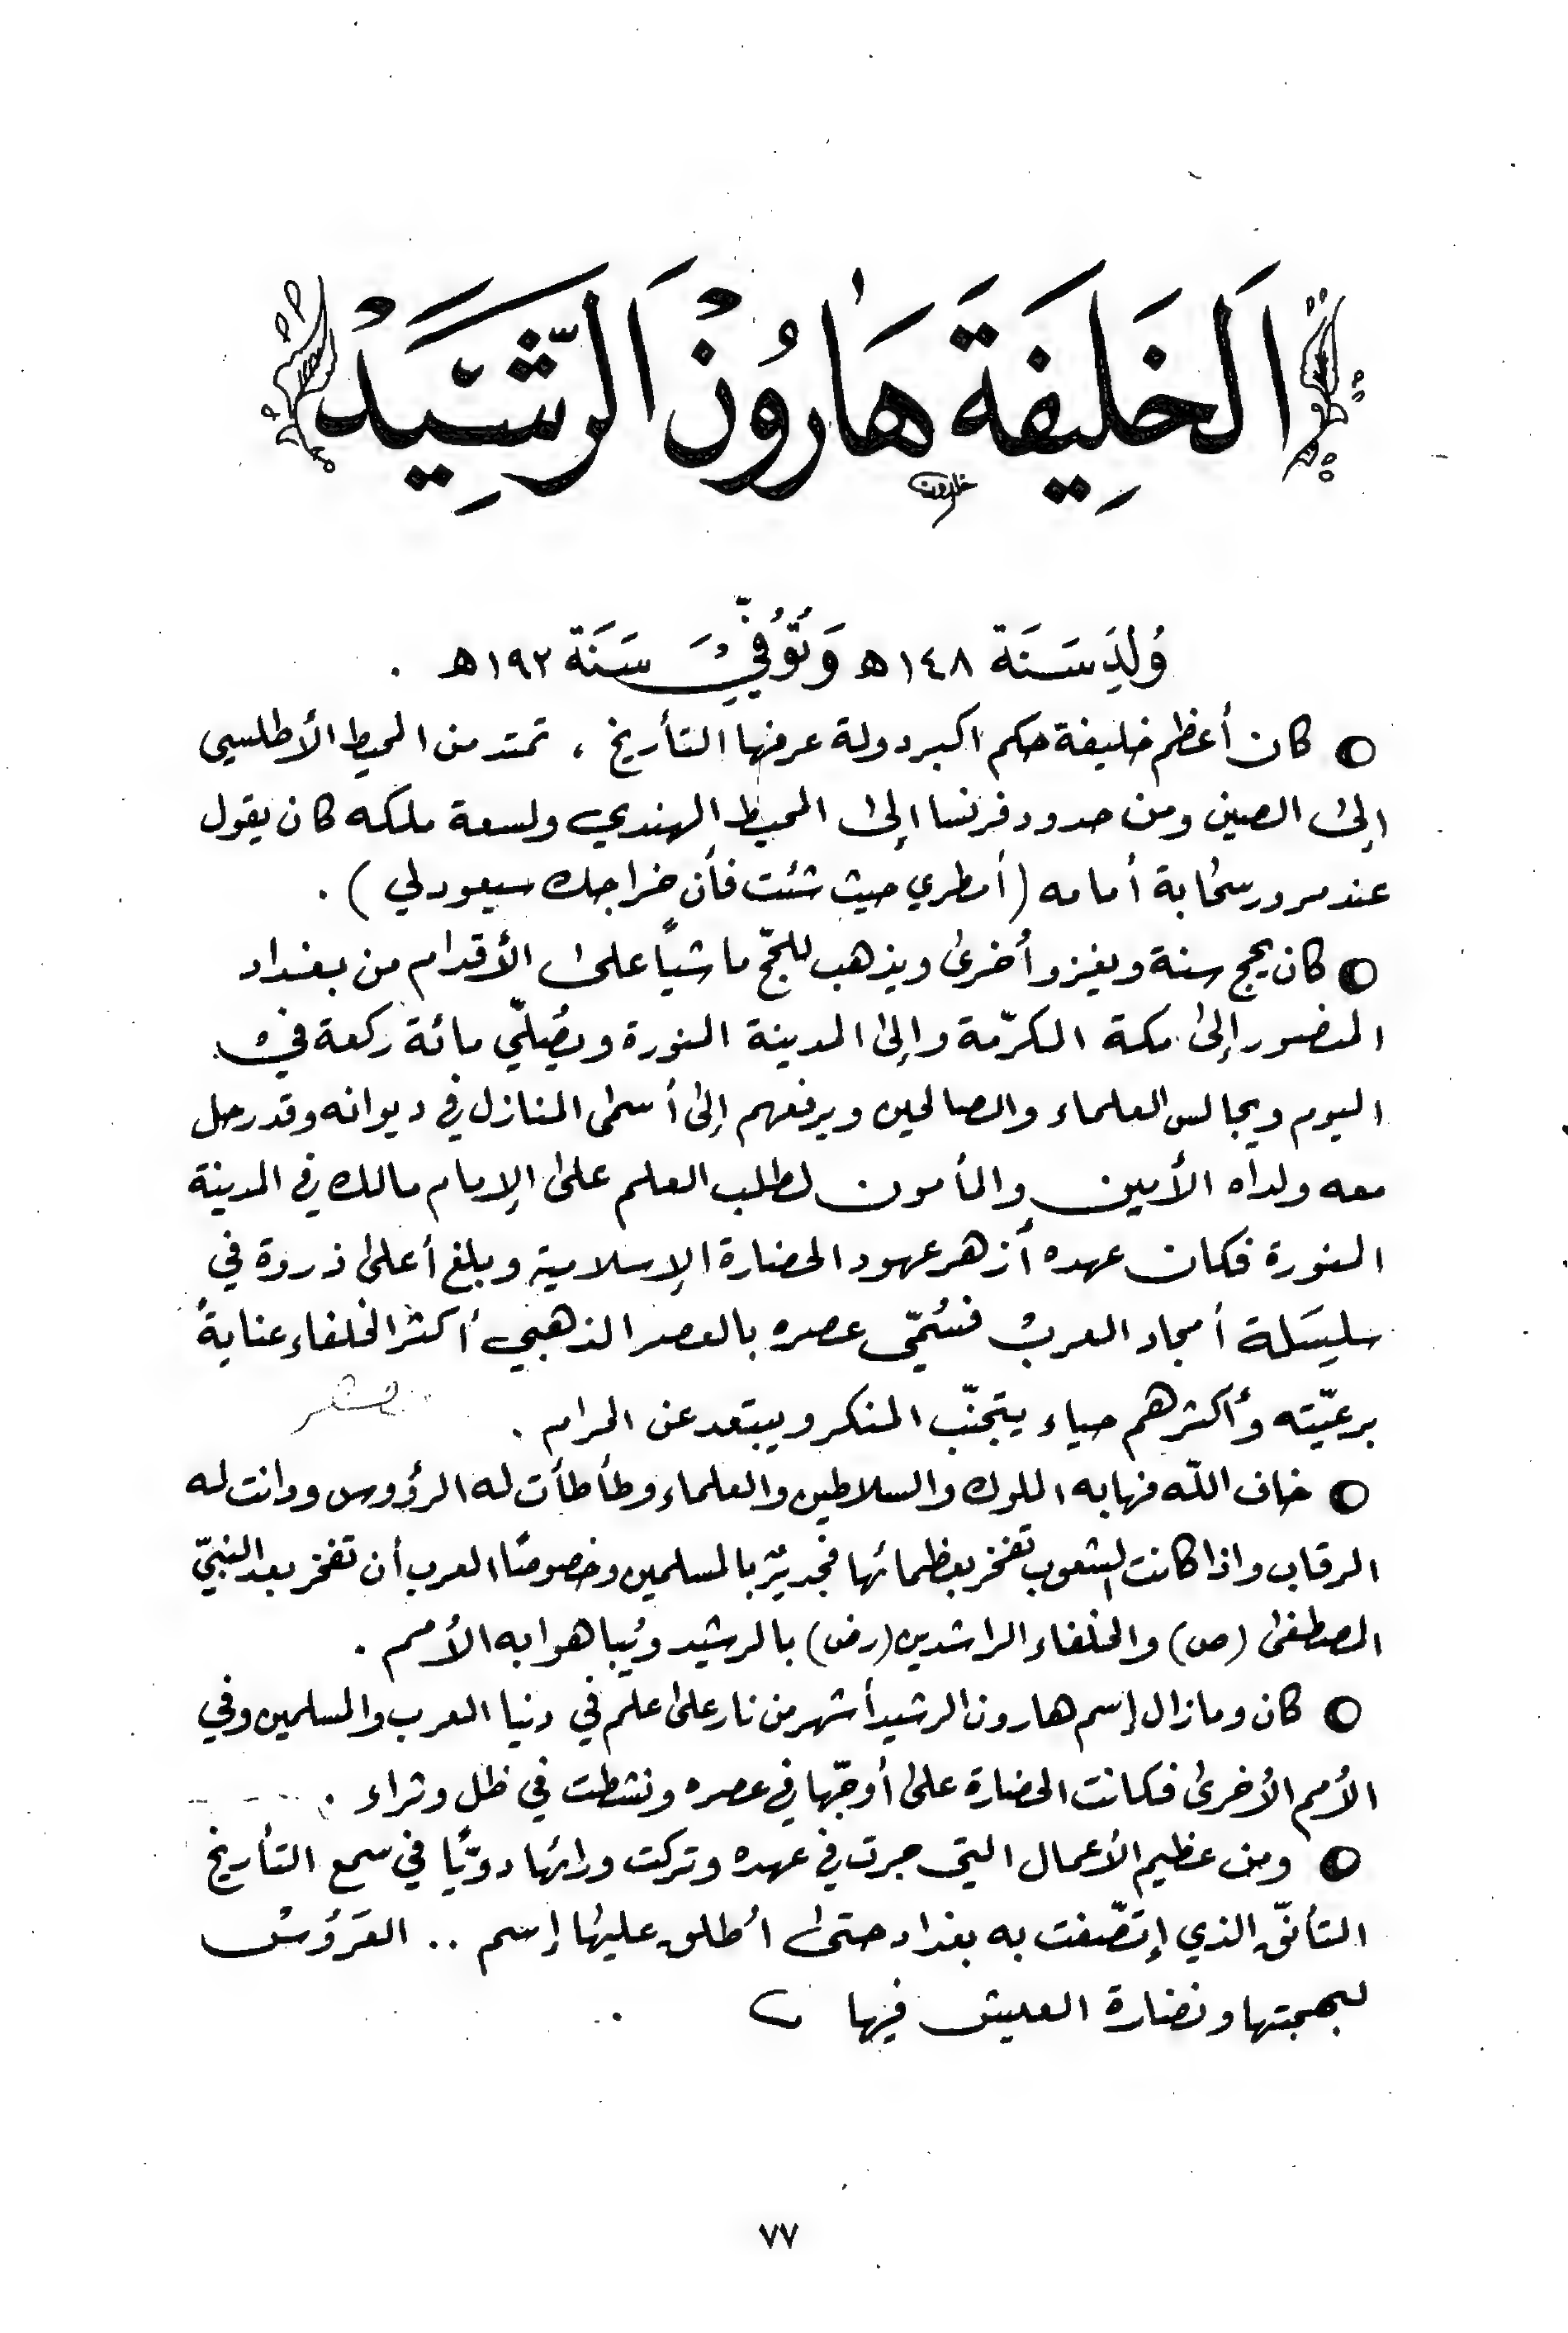 اَلخَلِيفَةَ هَارُونْ اَلرَّشَيِّدْ
خلدون
وُلِدَ سَنَة ١٤٨ هـ وَتُوُفِّيَ سَنَة ١٩٢ هـ .
كان أعظم خليفة حكم اكبر دولة عرفها التأريخ ، تمتد من المحيط الأطلسي
إلى الصين ومن حدود فرنسا إلى المحيط الهندي ولسعة ملكه كان يقول
عند مرور سحابة أمامه (أمطري حيث شئت فأن خراجك سيعود لي) .
كان يحج سنة ويغزو أُخرى ويذهب للحجّ ماشياً على الأقدام من بغداد
المنصور إلى مكة المكرّمة وإلى المدينة المنورة ويُصَلّي مائة ركعة في
اليوم ويجالس العلماء والصالحين ويرفعهم إلى أسمى المنازل في ديوانه وقد رحل
معه ولداه الأمين والمأمون لطلب العلم على الإمام مالك في المدينة
المنورة فكان عهده أزهر عهود الحضارة الإسلامية وبلغ أعلى ذروة في
سلسَلة أمجاد العرب فسُمّي عصره بالعصر الذهبي أكثر الخلفاء عنايةً
برعيّته وأكثرهم حياء يتجنّب المنكر ويبتعد عن الحرام .
خاف اللّه فهابه الملوك والسلاطين والعلماء وطأطأت له الرؤوس ودانت له
الرقاب واذا كانت الشعوب تفخر بعظمائها فجديرٌ بالمسلمين وخصوصًا العرب أن تفخر بعد النبيّ
المصطفى (ص) والخلفاء الراشدين (رض) بالرشيد ويُباهوا به الأمم .
كان ومازال إسم هارون الرشيد أشهر من نار على علم في دنيا العرب والمسلمين وفي
الأمم الأخرى فكانت الحضارة على أوجّها في عصره ونشطت في ظل وثراء .
ومن عظيم الأعمال التي جرت في عهده وتركت ورائها دويًّا في سمع التأريخ
التأنّق الذي إتصّفت به بغداد حتى اُطلق عليها إسم .. العَرُوسْ
لبهجتها ونضارة العيش فيها
٧٧